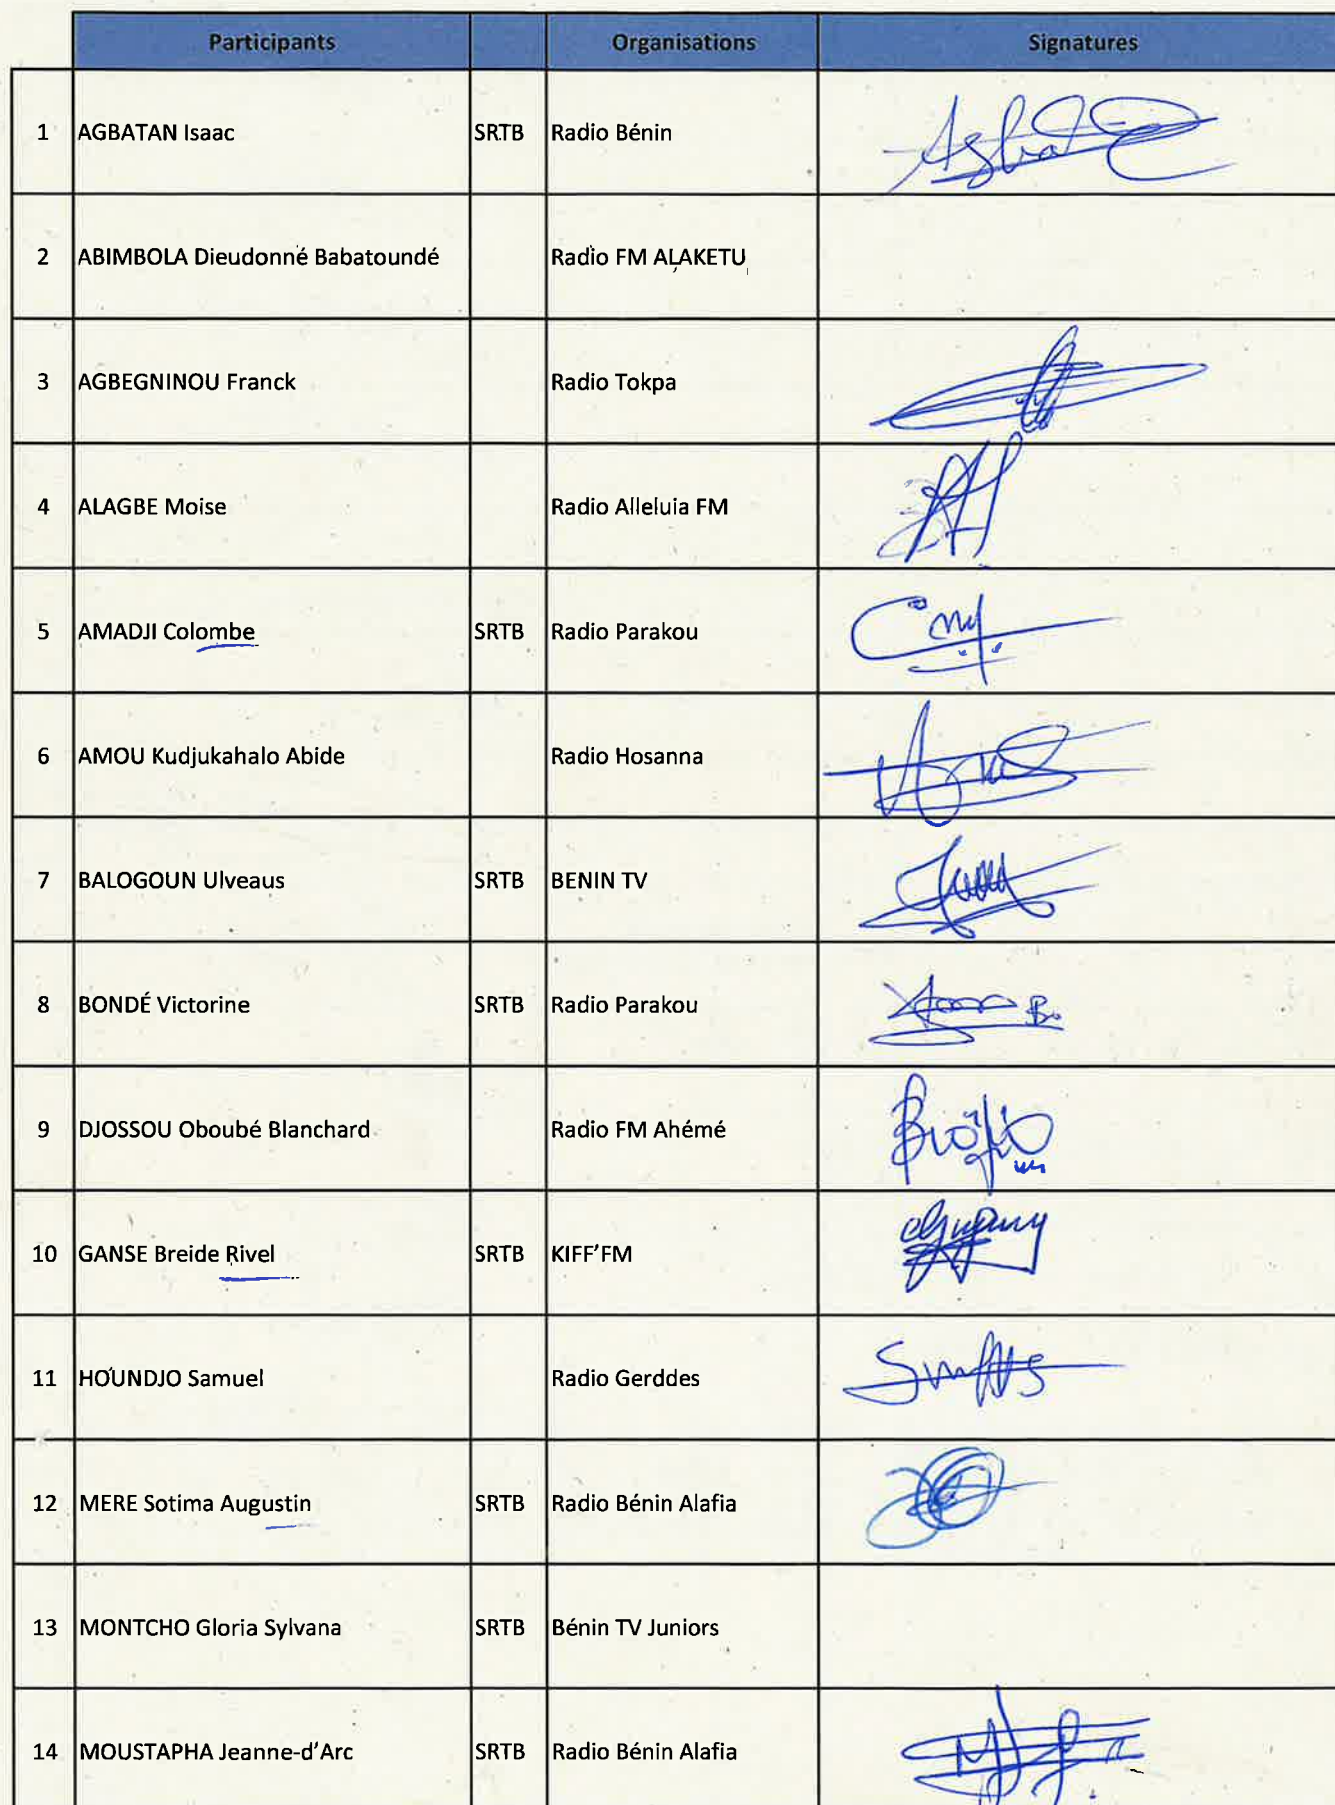 Participants Organisations Signatures
1 AGBATAN Isaac SRTB Radio Bénin
2 ABIMBOLA Dieudonné Babatoundé Radio FM ALAKETU
3 AGBEGNINOU Franck Radio Tokpa
4 ALAGBE Moise Radio Alleluia FM
5 AMADJI Colombe SRTB Radio Parakou
6 AMOU Kudjukahalo Abide Radio Hosanna
7 BALOGOUN Ulveaus SRTB BENIN TV
8 BONDÉ Victorine SRTB Radio Parakou
9 DJOSSOU Oboubé Blanchard Radio FM Ahémé
10 GANSE Breide Rivel SRTB KIFF'FM
11 HOUNDJO Samuel Radio Gerddes
12 MERE Sotima Augustin SRTB Radio Bénin Alafia
13 MONTCHO Gloria Sylvana SRTB Bénin TV Juniors
14 MOUSTAPHA Jeanne-d'Arc SRTB Radio Bénin Alafia